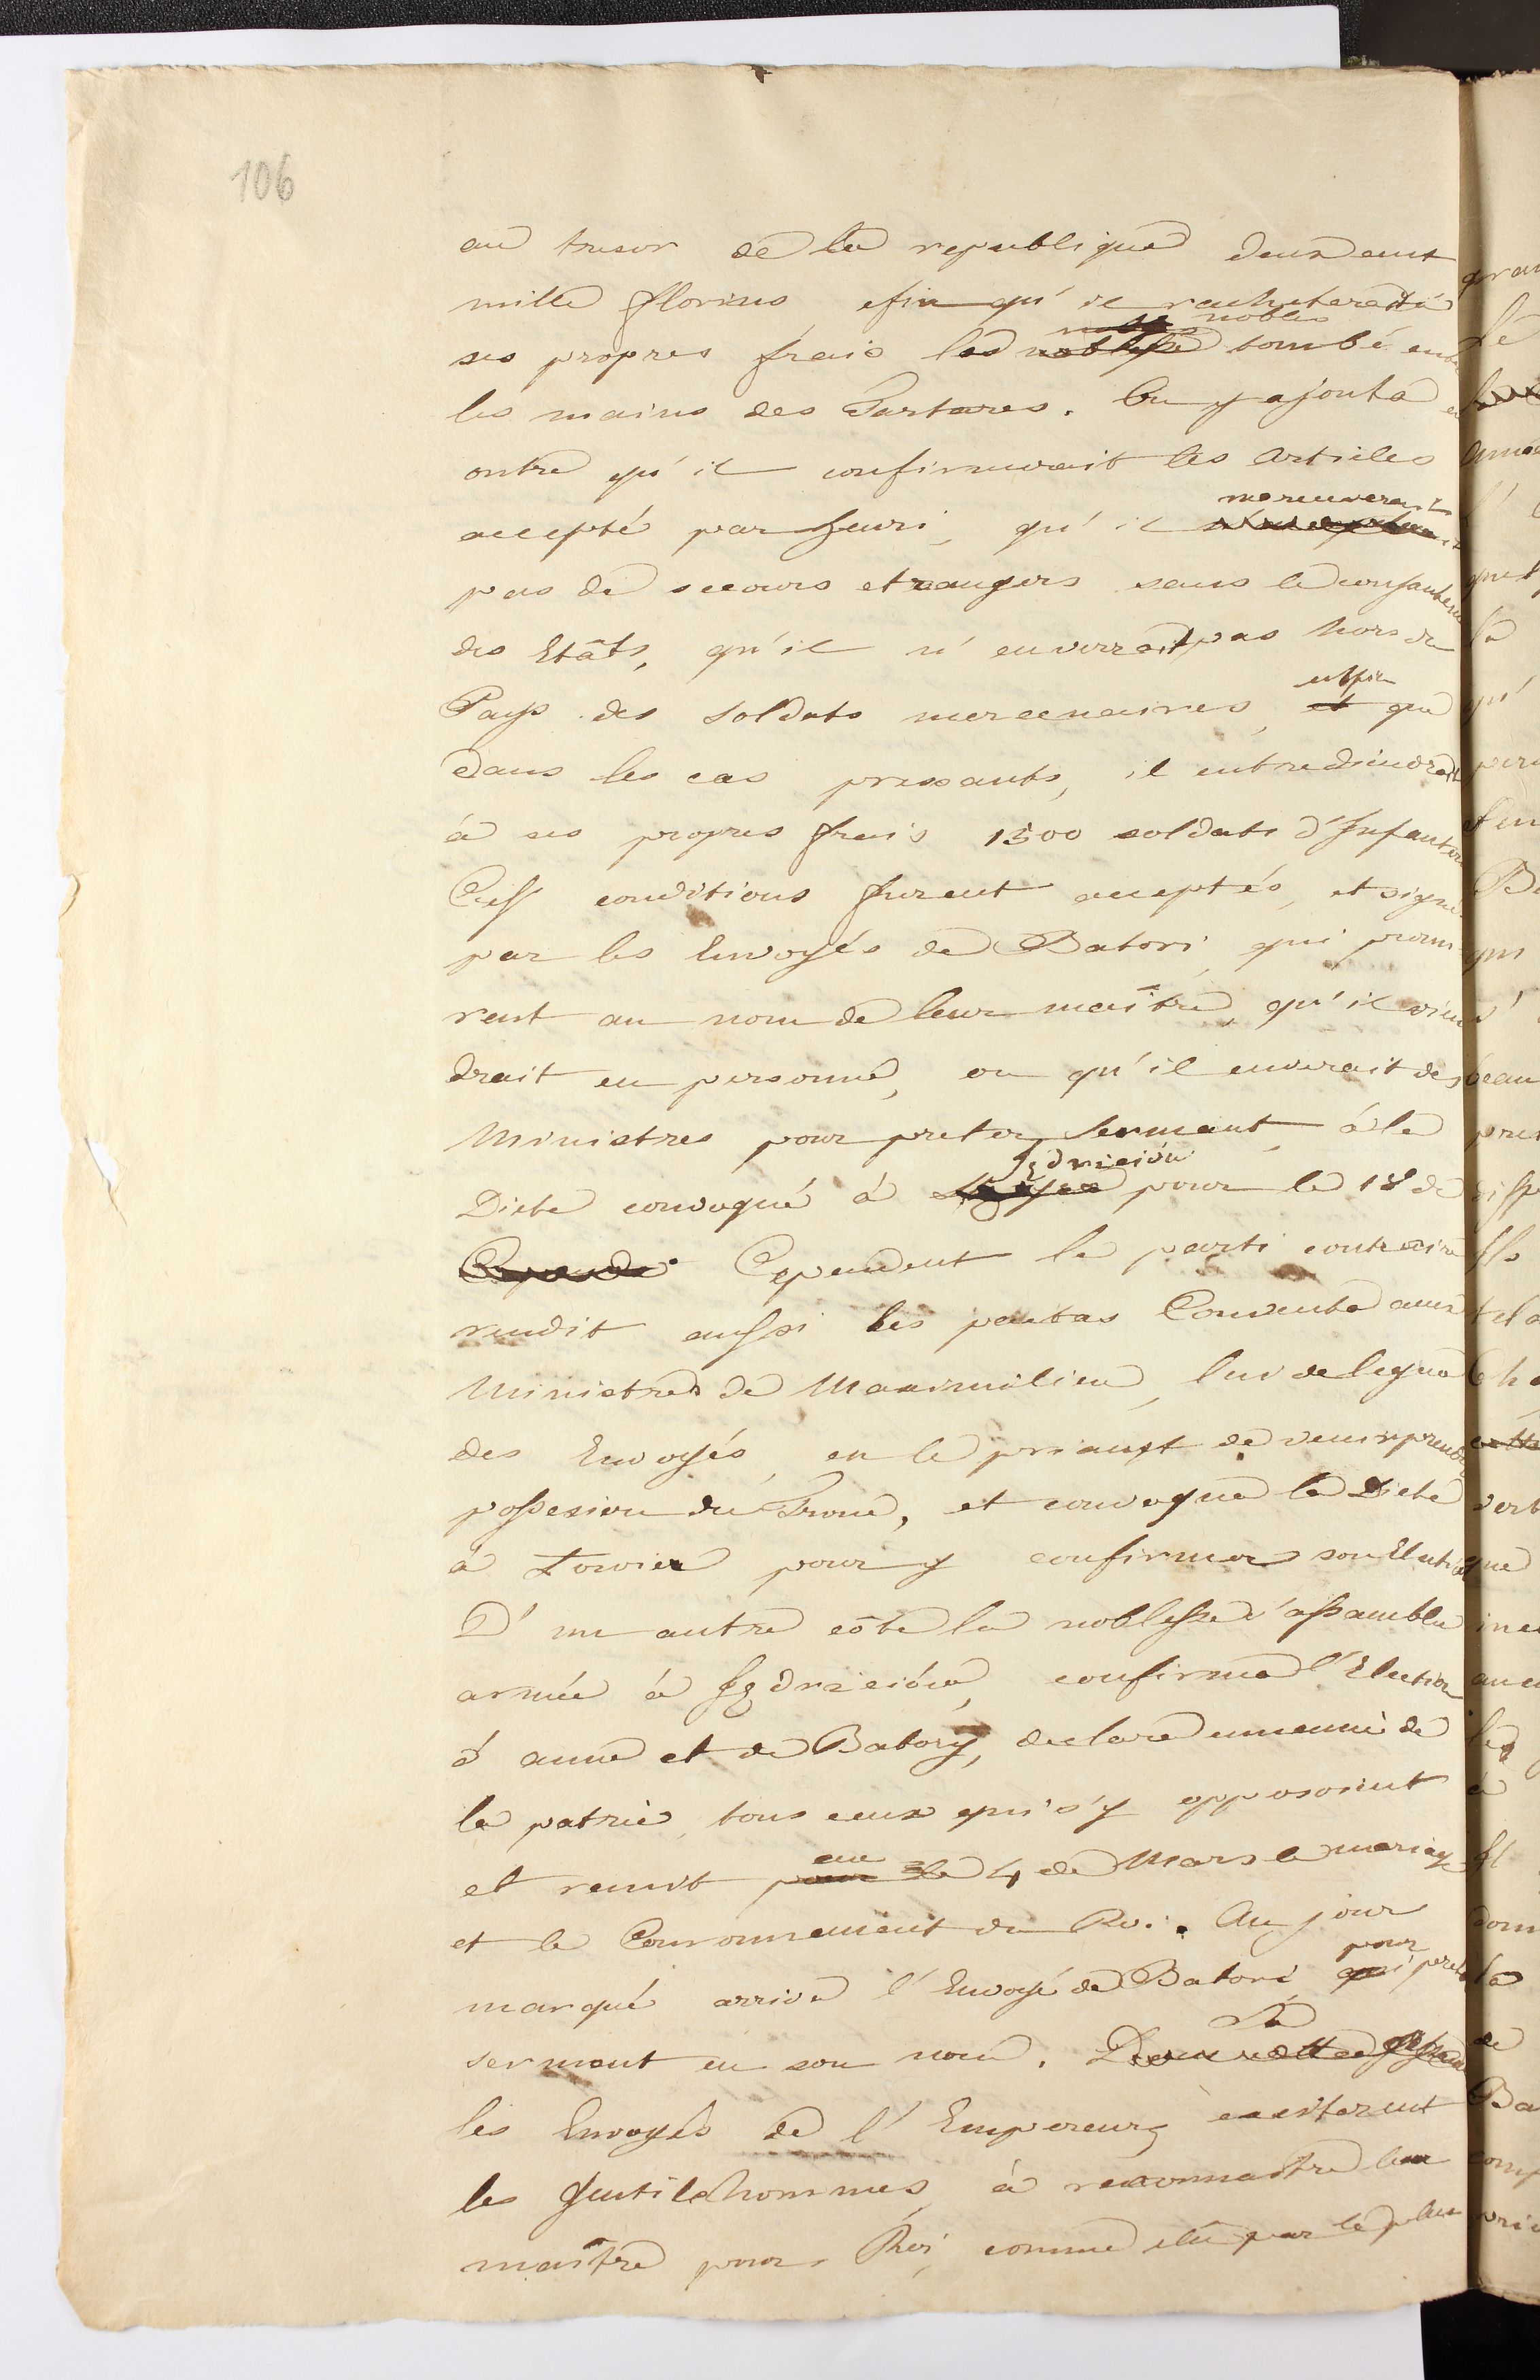 106
au tresor de la republique deux cent
mille florins, efin qu'il racheterait à
nobles
ses propres frais les noblesse tombé entre
les mains des Tartares. On y ajouta en
outre qu'il confirmerait les Articles
accepté par Henri, qu'il
pas de secours etrangers sans le consantem
des Etâts, qu'il n'enverrait pas hors du
enfin
Pays des soldats mercenaires, et que
dans les cas pressants, il entrediendrait
à ses propres frais 1500 soldats d'Infanterie
Ces conditions furent acceptés, et signé
par les Envoyés de Batori, qui promi-
rent au nom de leur maître, qu'il vien
drait en personne, ou qu'il enverait des
Ministres pour preter serment, à la
Jędrzeiów
Diete convoqué à pour le 18 de
Cependa Cependent le parti contraire
rendit aussi les pactas Conventa aux
Ministres de Maximilien, lui delegua
des Envoyés, en le priant de venir prendre
possesion du Trone, et convoqua la Diete
à Lowicz pour y confirmer son Election
D'un autre côte la noblesse s'assambla
armée à Jędrzeiów, confirma l'Election
d'anne et de Batory, declara ennemie de
la patrie, tous ceux qui s'y opposoient
au
et remit pour le 4 de Mars le mariage
et le Couronnement du Roi. Au jour
pour
marqué arriva l'Envoyé de Batori qui preter
serment en son nom.
les Envoyés de l'Empereur, exciterent
les Gentilshommes, à reconnaitre leur
maître pour Roi, comme elû par le plus